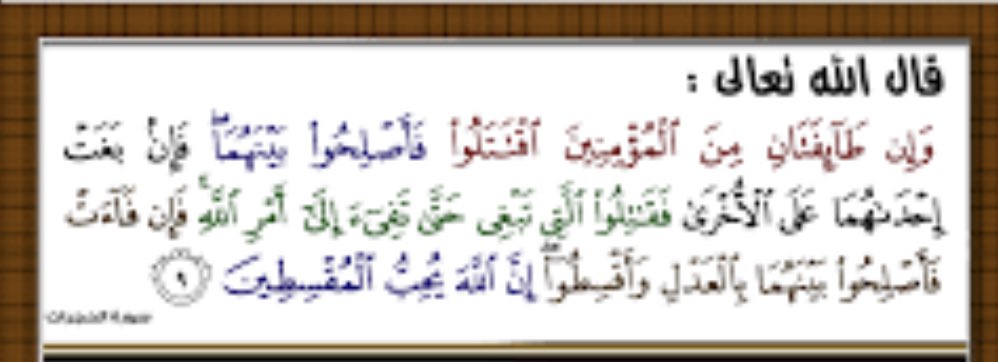 قال الله تعالى :
وَإِن طَآئِفَتَانِ مِنَ ٱلْمُؤْمِنِينَ ٱقْتَتَلُوا۟ فَأَصْلِحُوا۟ بَيْنَهُمَا ۖ فَإِنۢ بَغَتْ
إِحْدَىٰهُمَا عَلَى ٱلْأُخْرَىٰ فَقَٰتِلُوا۟ ٱلَّتِى تَبْغِى حَتَّىٰ تَفِىٓءَ إِلَىٰٓ أَمْرِ ٱللَّهِ ۚ فَإِن فَآءَتْ
فَأَصْلِحُوا۟ بَيْنَهُمَا بِٱلْعَدْلِ وَأَقْسِطُوٓا۟ ۖ إِنَّ ٱللَّهَ يُحِبُّ ٱلْمُقْسِطِينَ ٩
سورة الحجرات